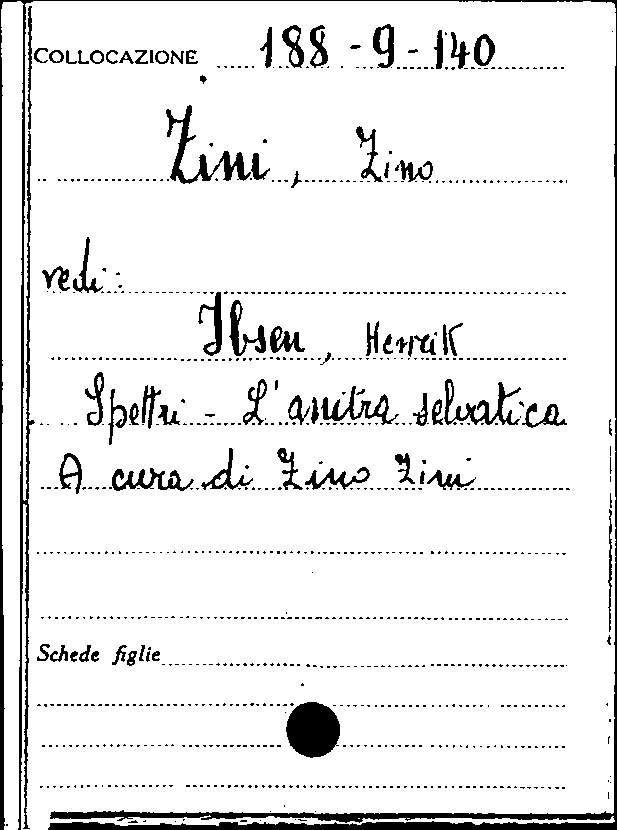 COLLOCAZIONE 188-9-140
Zini, Zino
vedi:
Ibsen, Henrik
Spettri - L'anitra selvatica
A cura di Zino Zini
Schede figlie